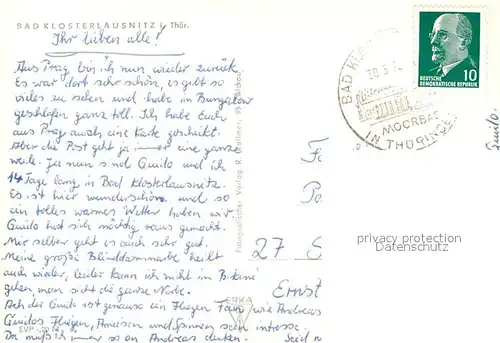 BAD KLOSTERLAUSNITZ i. Thür.
Ihr lieben alle!
Aus Prag bin ich nun wieder zurück.
Es war dort sehr schön, es gibt so
vieles zu sehen und habe im Bungalow
geschlafen ganz toll. Ich habe Euch
aus Prag auch eine Karte geschickt.
Aber die Post geht ja immer eine ganze
weile. Ja nun sind Guido und ich
14 Tage lang in Bad Klosterlausnitz.
Es ist hier wunderschön und so
ein tolles warmes Wetter haben wir
Guido hat sich mächtig raus gemacht.
Mir selber geht es auch sehr gut.
Meine große Blinddarmnarbe heilt
auch wieder, leider kann ich nicht im Bikini
gehen man sieht die ganze Narbe.
Ach der Guido ist genauso ein Fliegen Fan wie Andreas
Guidos Fliegen, Ameisen und Spinnen sein
Da muß ich immer so an Andreas denken.
Seid
Guido
Fotografischer Verlag R.
BAD
MOORBAD
IN THÜRINGEN
DEUTSCHE
DEMOKRATISCHE REPUBLIK
10
27
Ernst
EVP
privacy protection
Datenschutz